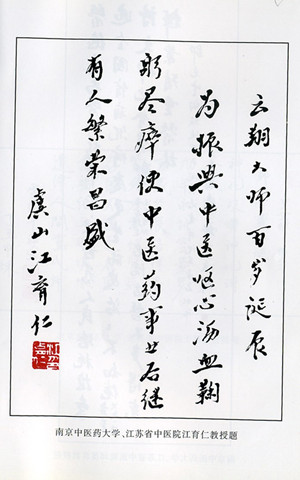 云翔大师百岁诞辰
为振興中医呕心沥血鞠
躬尽瘁使中医药事业后继
有人繁荣昌盛
虞山江育仁
南京中医药大学、江苏省中医院江育仁教授题